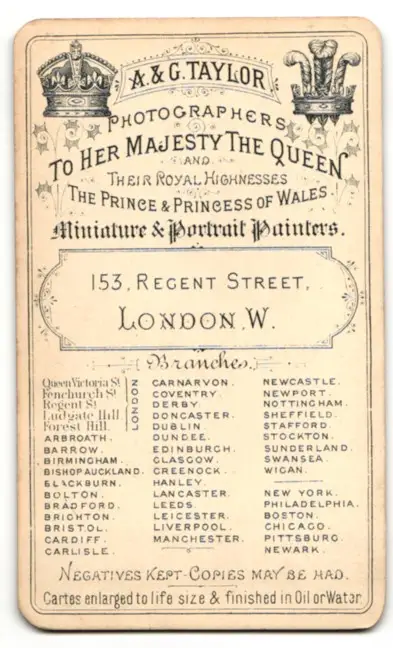 A. & G. TAYLOR
PHOTOGRAPHERS
TO HER MAJESTY THE QUEEN
AND
THEIR ROYAL HIGHNESSES
THE PRINCE & PRINCESS OF WALES.
Miniature & Portrait Painters.
153, REGENT STREET,
LONDON, W.
Branches.
Queen Victoria St.
Fenchurch St.
Regent St.
Ludgate Hill.
Forest Hill.
LONDON
ARBROATH.
BARROW.
BIRMINGHAM.
BISHOP AUCKLAND.
BLACKBURN.
BOLTON.
BRADFORD.
BRIGHTON.
BRISTOL.
CARDIFF.
CARLISLE.
CARNARVON.
COVENTRY.
DERBY.
DONCASTER.
DUBLIN.
DUNDEE.
EDINBURGH.
GLASGOW.
GREENOCK.
HANLEY.
LANCASTER.
LEEDS.
LEICESTER.
LIVERPOOL.
MANCHESTER.
NEWCASTLE.
NEWPORT.
NOTTINGHAM.
SHEFFIELD.
STAFFORD.
STOCKTON.
SUNDERLAND.
SWANSEA.
WIGAN.
NEW YORK.
PHILADELPHIA.
BOSTON.
CHICAGO.
PITTSBURG.
NEWARK.
NEGATIVES KEPT-COPIES MAY BE HAD.
Cartes enlarged to life size & finished in Oil or Water